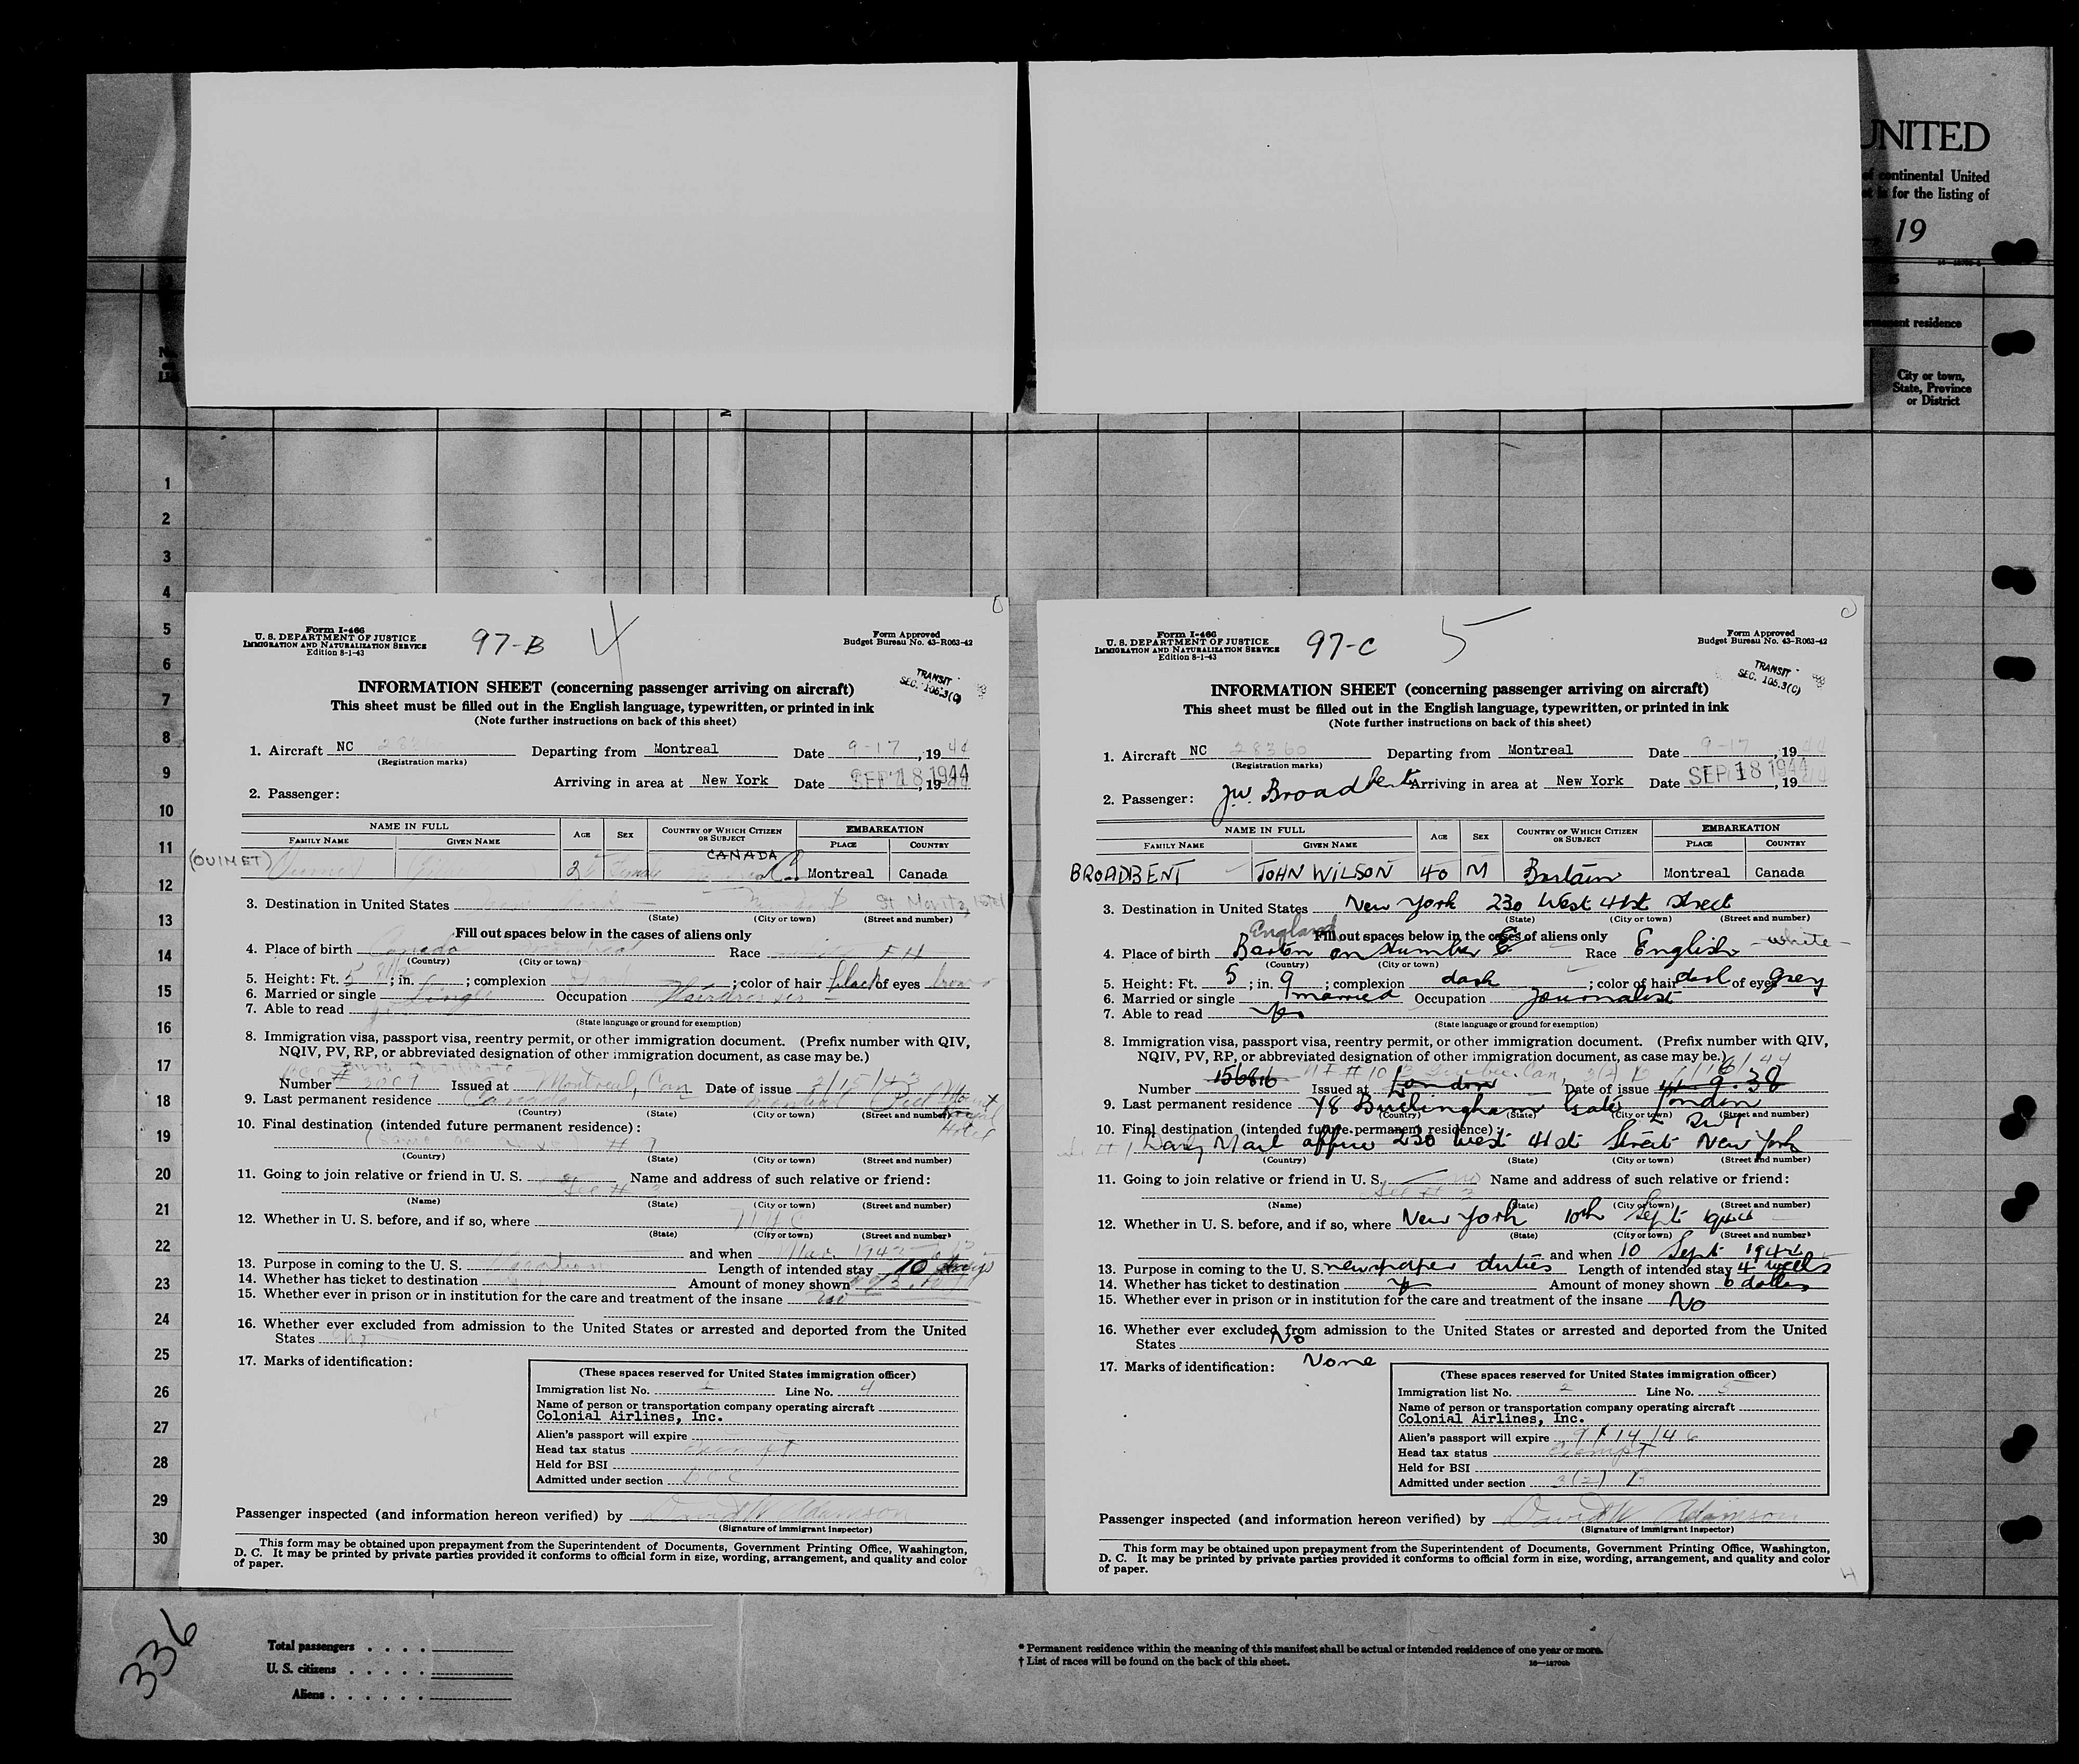 UNITED
of continental United
for the listing of
19
residence
City or town,
State, Province
or District
1
2
3
4
5
6
7
8
9
10
11
12
13
14
15
16
17
18
19
20
21
22
23
24
25
26
27
28
29
30
Form I-466
U. S. DEPARTMENT OF JUSTICE
IMMIGRATION AND NATURALIZATION SERVICE
Edition 8-1-43
97-B 4
Form Approved
Budget Bureau No. 43-R063-42
TRANSIT
SEC. 105.3(C)
INFORMATION SHEET (concerning passenger arriving on aircraft)
This sheet must be filled out in the English language, typewritten, or printed in ink
(Note further instructions on back of this sheet)
1. Aircraft NC Departing from Montreal Date 9-17, 1944
(Registration marks)
Arriving in area at New York Date SEP 18 1944, 19
2. Passenger:
NAME IN FULL AGE SEX COUNTRY OF WHICH CITIZEN OR SUBJECT EMBARKATION
FAMILY NAME GIVEN NAME PLACE COUNTRY
CANADA
(OUIMET) Montreal Canada
3. Destination in United States St Moritz Hotel
(State) (City or town) (Street and number)
Fill out spaces below in the cases of aliens only
4. Place of birth Canada Montreal Race
(Country) (City or town)
5. Height: Ft. 5; in. ; complexion ; color of hair black of eyes brown
6. Married or single Single Occupation Hairdresser
7. Able to read
(State language or ground for exemption)
8. Immigration visa, passport visa, reentry permit, or other immigration document. (Prefix number with QIV,
NQIV, PV, RP, or abbreviated designation of other immigration document, as case may be.)
Number Issued at Montreal, Can Date of issue 2/15/43
9. Last permanent residence Canada Montreal
(Country) (State) (City or town) (Street and number)
Hotel
10. Final destination (intended future permanent residence):
(Same as above) # 9
(Country) (State) (City or town) (Street and number)
11. Going to join relative or friend in U. S. Name and address of such relative or friend:
See # 3
(Name) (State) (City or town) (Street and number)
12. Whether in U. S. before, and if so, where NYC
(State) (City or town) (Street and number)
and when 1942
13. Purpose in coming to the U. S. Vacation Length of intended stay 10 days
14. Whether has ticket to destination Amount of money shown
15. Whether ever in prison or in institution for the care and treatment of the insane no
16. Whether ever excluded from admission to the United States or arrested and deported from the United
States no
17. Marks of identification:
(These spaces reserved for United States immigration officer)
Immigration list No. 2 Line No. 4
Name of person or transportation company operating aircraft
Colonial Airlines, Inc.
Alien's passport will expire
Head tax status exempt
Held for BSI
Admitted under section
Passenger inspected (and information hereon verified) by David W Adamson
(Signature of immigrant inspector)
This form may be obtained upon prepayment from the Superintendent of Documents, Government Printing Office, Washington,
D. C. It may be printed by private parties provided it conforms to official form in size, wording, arrangement, and quality and color
of paper.
3
Form I-466
U. S. DEPARTMENT OF JUSTICE
IMMIGRATION AND NATURALIZATION SERVICE
Edition 8-1-43
97-C 5
Form Approved
Budget Bureau No. 43-R063-42
TRANSIT
SEC. 105.3(C)
INFORMATION SHEET (concerning passenger arriving on aircraft)
This sheet must be filled out in the English language, typewritten, or printed in ink
(Note further instructions on back of this sheet)
1. Aircraft NC 28360 Departing from Montreal Date 9-17, 1944
(Registration marks)
Arriving in area at New York Date SEP 18 1944, 19
2. Passenger: J.W. Broadbent
NAME IN FULL AGE SEX COUNTRY OF WHICH CITIZEN OR SUBJECT EMBARKATION
FAMILY NAME GIVEN NAME PLACE COUNTRY
BROADBENT JOHN WILSON 40 M Britain Montreal Canada
3. Destination in United States New York 230 West 41st Street
(State) (City or town) (Street and number)
England
Fill out spaces below in the cases of aliens only
4. Place of birth Barton on Humber Race English - white -
(Country) (City or town)
5. Height: Ft. 5; in. 9; complexion dark; color of hair dark of eyes grey
6. Married or single married Occupation Journalist
7. Able to read Yes
(State language or ground for exemption)
8. Immigration visa, passport visa, reentry permit, or other immigration document. (Prefix number with QIV,
NQIV, PV, RP, or abbreviated designation of other immigration document, as case may be.)
Number 156816 Issued at London Date of issue
9. Last permanent residence 48 Buckingham Gate London
(Country) (State) (City or town) (Street and number)
SW1
10. Final destination (intended future permanent residence):
Daily Mail office 230 West 41st Street New York
(Country) (State) (City or town) (Street and number)
11. Going to join relative or friend in U. S. no Name and address of such relative or friend:
See # 3
(Name) (State) (City or town) (Street and number)
12. Whether in U. S. before, and if so, where New York 10th Sept 1944
(State) (City or town) (Street and number)
and when 10 Sept 1944
13. Purpose in coming to the U. S. newspaper duties Length of intended stay 4 weeks
14. Whether has ticket to destination yes Amount of money shown 6 dollars
15. Whether ever in prison or in institution for the care and treatment of the insane No
16. Whether ever excluded from admission to the United States or arrested and deported from the United
States No
17. Marks of identification: None
(These spaces reserved for United States immigration officer)
Immigration list No. 2 Line No. 5
Name of person or transportation company operating aircraft
Colonial Airlines, Inc.
Alien's passport will expire 9/14/46
Head tax status exempt
Held for BSI
Admitted under section 3(2) B
Passenger inspected (and information hereon verified) by David W Adamson
(Signature of immigrant inspector)
This form may be obtained upon prepayment from the Superintendent of Documents, Government Printing Office, Washington,
D. C. It may be printed by private parties provided it conforms to official form in size, wording, arrangement, and quality and color
of paper.
4
336
Total passengers . . . .
U. S. citizens . . . . .
Aliens . . . . . .
* Permanent residence within the meaning of this manifest shall be actual or intended residence of one year or more.
† List of races will be found on the back of this sheet.